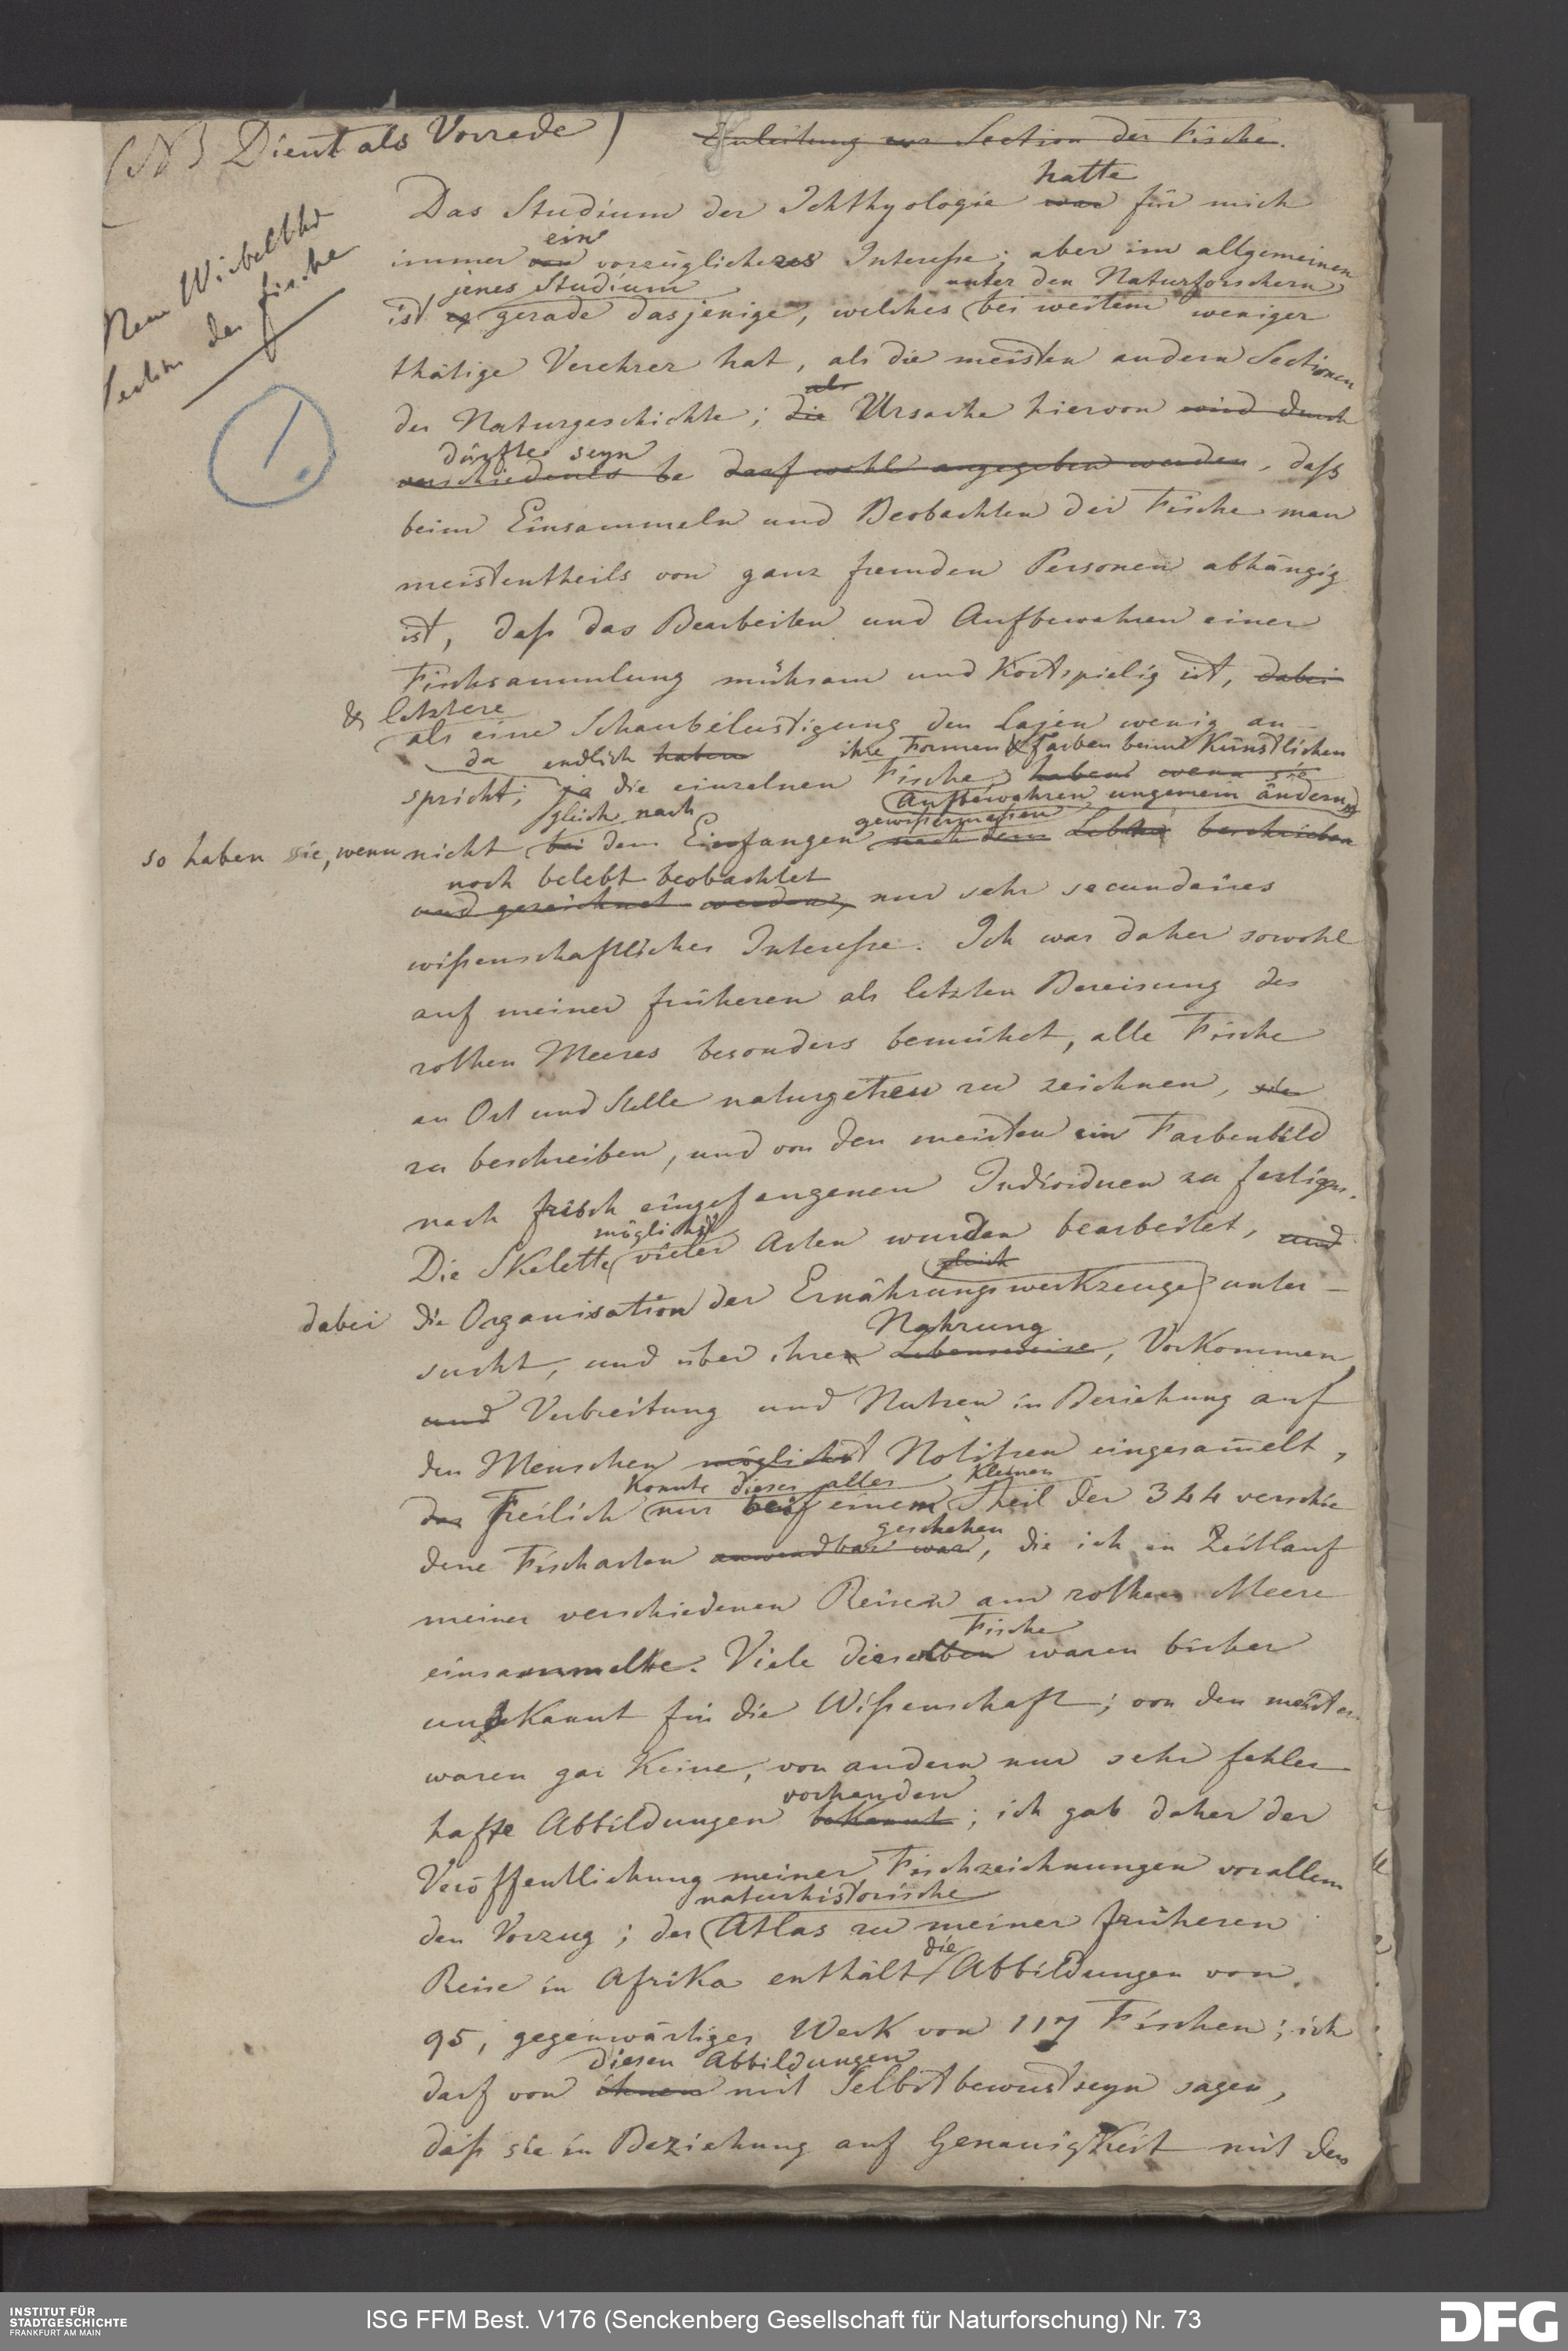 (NB Dient als Vorrede)
Einleitung zur Section der Fische.
Neue Wirbelthr
Section der Fische
1.
hatte
Das Studium der Ichthyologie war für mich
ein
immer von vorzüglicheres Interesse; aber im allgemeinen
jenes Studium unter den Naturforschern
ist es gerade dasjenige, welches bei weitem weniger
thätige Verehrer hat, als die meisten andern Sectionen
als
der Naturgeschichte; die Ursache hiervon wird durch
dürfte seyn
verschiedenes be darf wohl angegeben werden, daß
beim Einsammeln und Beobachten der Fische man
meistentheils von ganz fremden Personen abhängig
ist, daß das Bearbeiten und Aufbewahren einer
Fischsammlung mühsam und Kostspielig ist, dabei
& letztere
als eine Schaubelustigung den Lajen wenig an-
da endlich haben ihre Formen & Farben beim Künstlichen
spricht; ja die einzelnen Fische haben wenn sie
Aufbewahren ungemein ändern
gleich nach gewissermassen
so haben sie, wenn nicht bei dem Einfangen nach dem Leben beschrieben
noch belebt beobachtet
und gezeichnet werden, nur sehr secundaires
wißenschaftliches Interesse. Ich war daher sowohl
auf meiner früheren als letzten Bereisung des
rothen Meeres besonders bemühet, alle Fische
an Ort und Stelle naturgetreu zu zeichnen, sie
zu beschreiben, und von den meisten ein Farbenbild
nach frisch eingefangenen Individuen zu fertigen.
möglichst
Die Skelette vieler Arten wurden bearbeitet, und
gleich
dabei die Organisation der Ernährungswerkzeuge unter-
Nahrung
sucht, und über ihren Lebensweise, Vorkommen,
und Verbreitung und Nutzen in Beziehung auf
den Menschen möglichst Notitzen eingesam̄elt,
Konnte dieses alles Kleinen
das Freilich nur bei einem Theil der 344 verschie
geschehen
dene Fischarten anwendbar war, die ich in Zeitlauf
meiner verschiedenen Reisen am rothen Meere
Fische
einsammelte. Viele dieselben waren bisher
unbekannt für die Wißenschaft; von den meisten
waren gar Keine, von andern nur sehr fehler
vorhanden
hafte Abbildungen bekannt; ich gab daher der
Veröffentlichung meiner Fischzeichnungen vorallem
naturhistorische
den Vorzug; der Atlas zu meiner früheren
die
Reise in Afrika enthält Abbildungen von
95, gegenwärtiges Werk von 117 Fischen; ich
diesen Abbildungen
darf von ihnen mit Selbstbewustseyn sagen,
daß sie in Beziehung auf Genauigkeit mit den
INSTITUT FÜR
STADTGESCHICHTE
FRANKFURT AM MAIN
ISG FFM Best. V176 (Senckenberg Gesellschaft für Naturforschung) Nr. 73
DFG